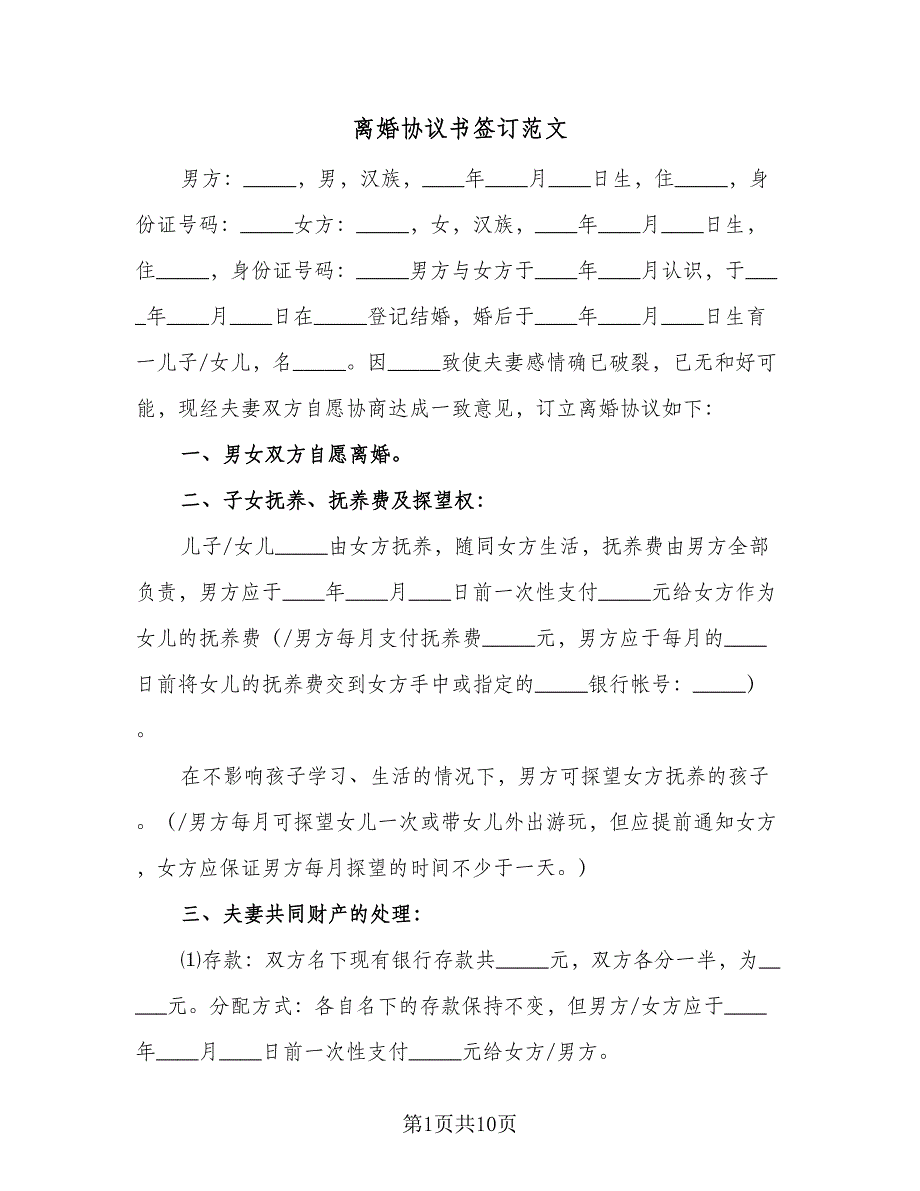 离婚协议书签订范文
男方：_____，男，汉族，____年____月____日生，住_____，身
份证号码：_____女方：_____，女，汉族，____年____月____日生，
住_____，身份证号码：_____男方与女方于____年____月认识，于___
_年____月____日在_____登记结婚，婚后于____年____月____日生育
一儿子/女儿，名_____。因_____致使夫妻感情确已破裂，已无和好可
能，现经夫妻双方自愿协商达成一致意见，订立离婚协议如下：
一、男女双方自愿离婚。
二、子女抚养、抚养费及探望权：
儿子/女儿_____由女方抚养，随同女方生活，抚养费由男方全部
负责，男方应于____年____月____日前一次性支付_____元给女方作为
女儿的抚养费（/男方每月支付抚养费_____元，男方应于每月的____
日前将女儿的抚养费交到女方手中或指定的_____银行帐号：_____）
。
在不影响孩子学习、生活的情况下，男方可探望女方抚养的孩子
。（/男方每月可探望女儿一次或带女儿外出游玩，但应提前通知女方
，女方应保证男方每月探望的时间不少于一天。）
三、夫妻共同财产的处理：
⑴存款：双方名下现有银行存款共_____元，双方各分一半，为__
___元。分配方式：各自名下的存款保持不变，但男方/女方应于____
年____月____日前一次性支付_____元给女方/男方。
第1页共10页